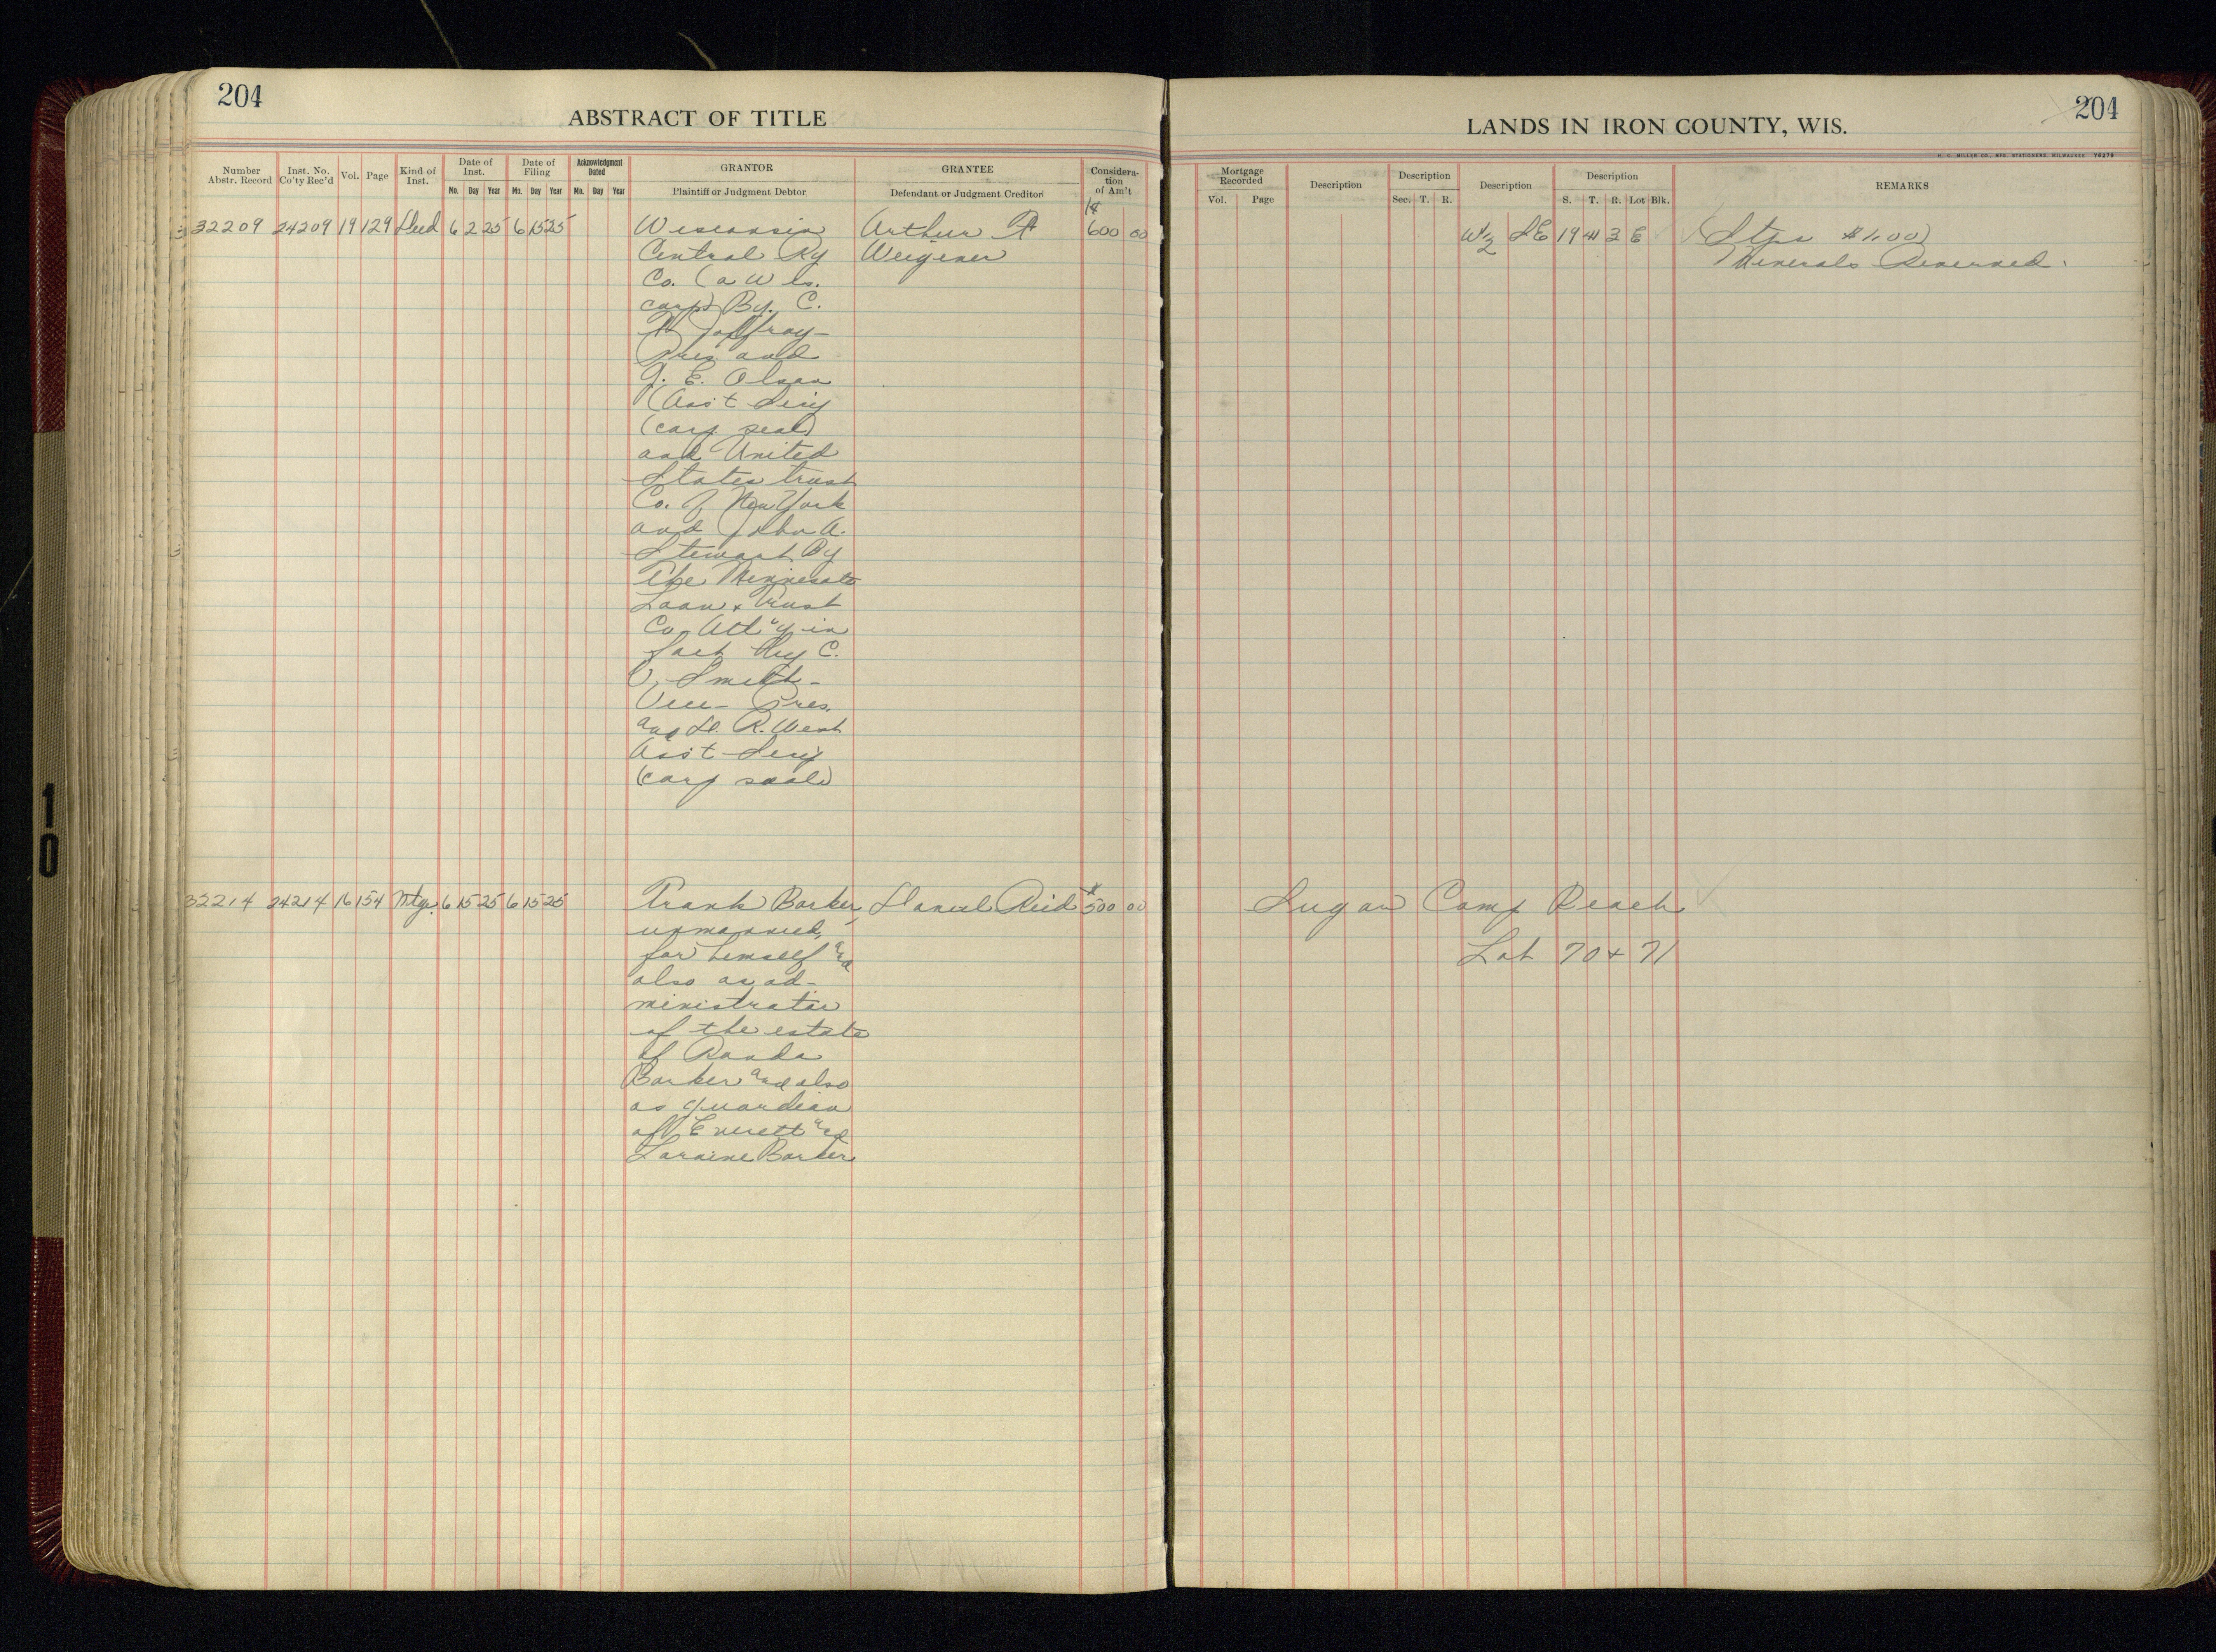 204
ABSTRACT OF TITLE
LANDS IN IRON COUNTY, WIS.
204
H. C. MILLER CO., MFG. STATIONERS, MILWAUKEE 76276
Number Abstr. Record
Inst. No. Co'ty Rec'd
Vol.
Page
Kind of Inst.
Date of Inst.
Mo. Day Year
Date of Filing
Mo. Day Year
Acknowledgment Dated
Mo. Day Year
GRANTOR
Plaintiff or Judgment Debtor
GRANTEE
Defendant or Judgment Creditor
Consideration of Am't
Mortgage Recorded
Vol. Page
Description
Description
Sec. T. R.
Description
Description
S. T. R. Lot Blk.
REMARKS
32209 24209 19 129 Deed 6 2 25 6 15 25 Wisconsin Arthur 600 00 W½ SE 19 41 3 E (Stps $1.00)
Central Ry Weigener Minerals Reserved.
Co. (a Wis.
corp) By. C.
Jaffray -
Pres and
G. E. Olson
(Ass't Secy
(corp seal)
and United
States Trust
Co. of New York
and John A.
Stewart By
The Minnesota
Loan & Trust
Co Att'y in
fact By C.
V. Smith -
Vice - Pres.
and R. West
Ass't Secy
(corp seal)
32214 24214 16 154 Mtge. 6 15 25 6 15 25 Frank Barker, Daniel Reid $500 00 Sugar Camp Beach
unmarried,
for himself and Lot 70 & 71
also as ad-
ministrator
of the estate
of Randa
Barker and also
as guardian
of Everett and
Loraine Barker
10